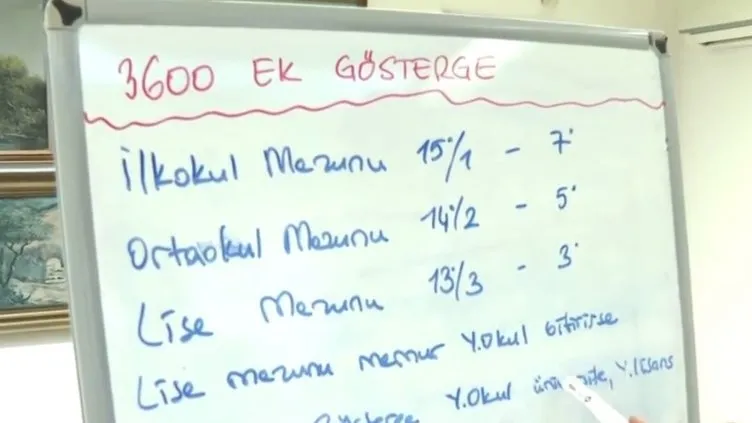 3600 EK GÖSTERGE
İlkokul Mezunu 15'/1 - 7'
Ortaokul Mezunu 14'/2 - 5'
Lise Mezunu 13'/3 - 3'
Lise mezunu memur Y.Okul bitirirse
Y.Okul Y.lisans